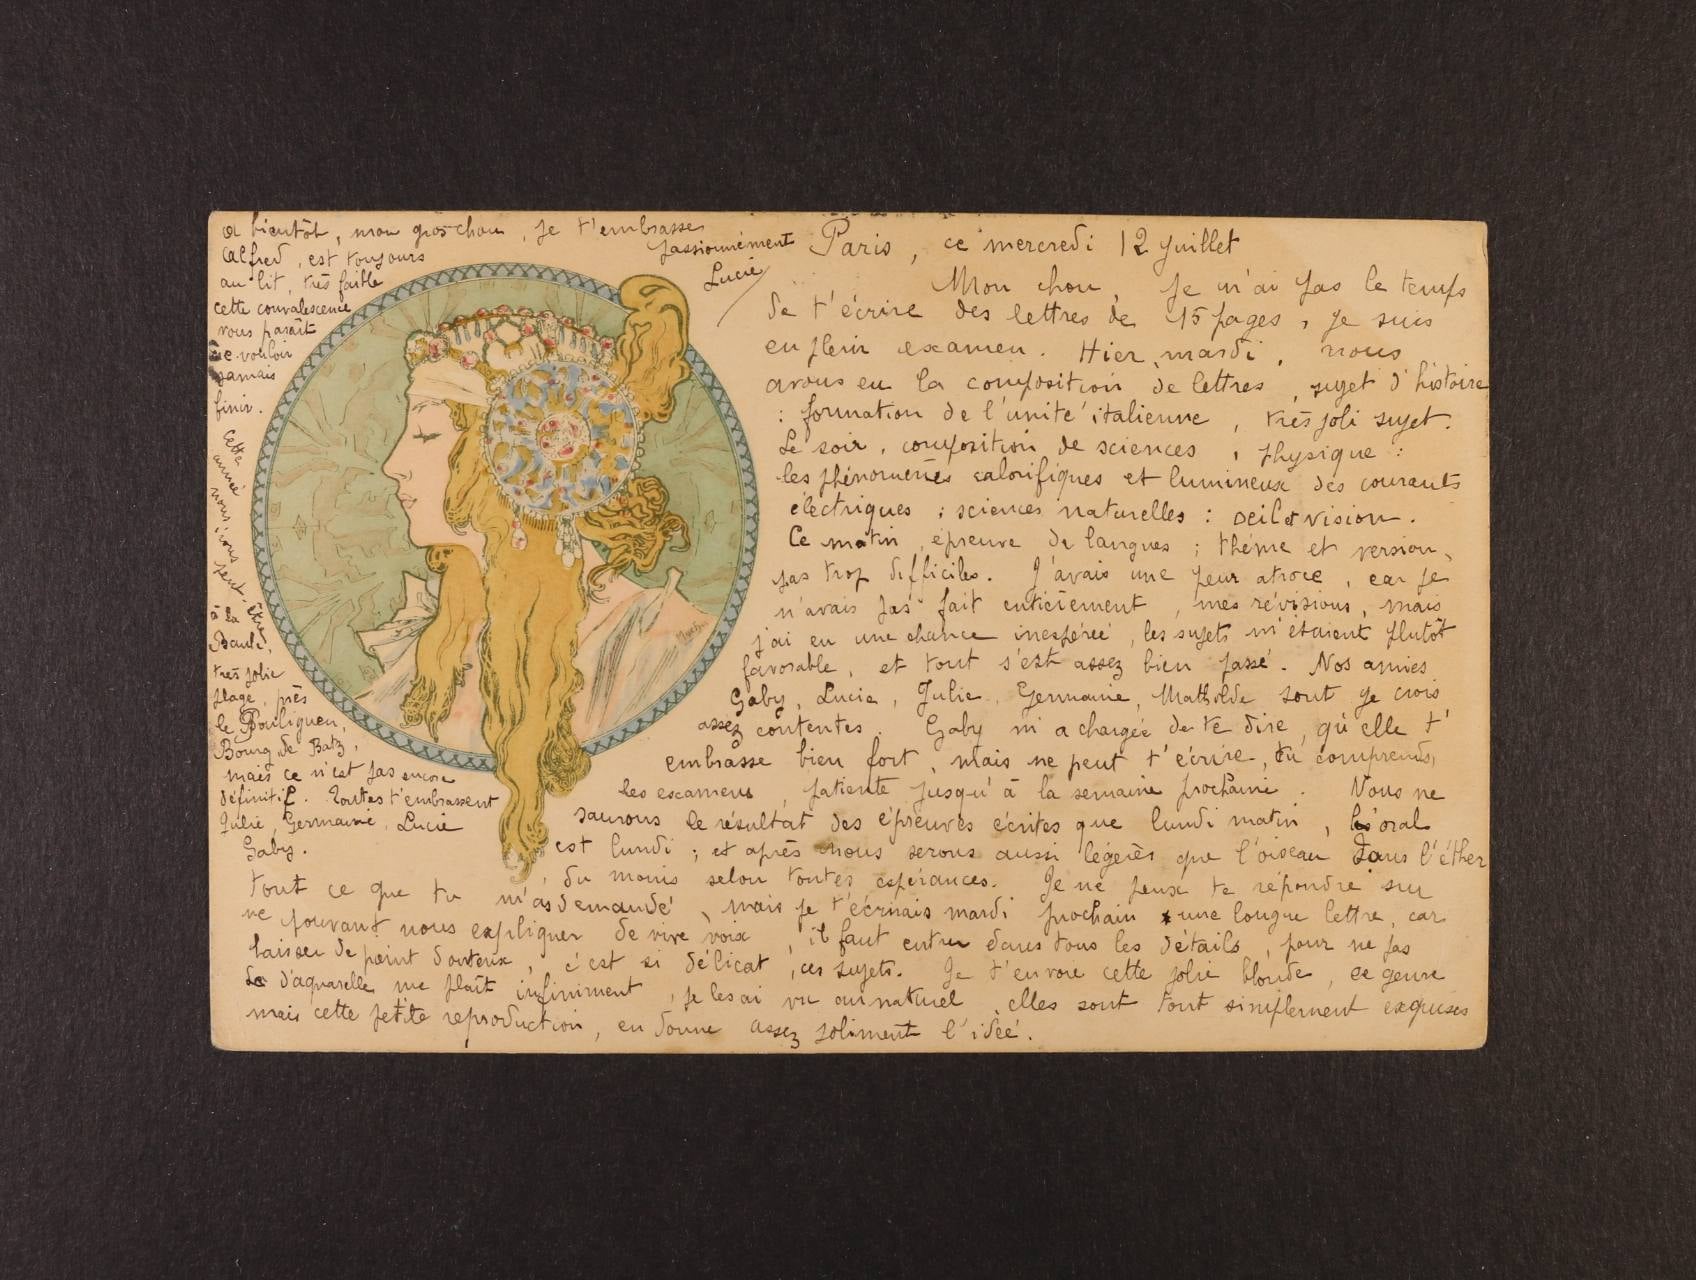 Paris, ce mercredi 12 juillet
Mon chou, je n'ai pas le temps
de t'écrire des lettres de 15 pages, je suis
en plein examen. Hier, mardi, nous
avons eu la composition de lettres, sujet d'histoire
: formation de l'unité italienne, très joli sujet.
Le soir, composition de sciences, physique :
les phénomènes calorifiques et lumineux des courants
électriques ; sciences naturelles : oeil et vision.
Ce matin, épreuve de langues ; thème et version,
pas trop difficiles. J'avais une peur atroce, car je
n'avais pas fait entièrement, mes révisions, mais
j'ai eu une chance inespérée, les sujets m'étaient plutôt
favorable, et tout s'est assez bien passé. Nos amies
Gaby, Lucie, Julie, Germaine, Mathilde sont je crois
assez contentes. Gaby m'a chargée de te dire, qu'elle t'
embrasse bien fort, mais ne peut t'écrire, tu comprends,
les examens, patiente jusqu'à la semaine prochaine. Nous ne
saurons le résultat des épreuves écrites que lundi matin, l'oral
est lundi ; et après nous serons aussi légères que l'oiseau dans l'éther
, du moins selon toutes espérances. Je ne peux te répondre sur
tout ce que tu m'as demandé, mais je t'écrirais mardi prochain une longue lettre, car
ne pouvant nous expliquer de vive voix, il faut entrer dans tous les détails, pour ne pas
laisser de point douteux, c'est si délicat, ces sujets. Je t'envoie cette jolie blonde, ce genre
d'aquarelle me plaît infiniment, je les ai vu au naturel, elles sont tout simplement exquises
mais cette petite reproduction, en donne assez joliment l'idée.
a bientôt, mon gros chou, je t'embrasse
passionnément
Lucie
Alfred, est toujours
au lit, très faible
cette convalescence
nous paraît
ne vouloir
jamais
finir.
Cette
année
nous irons
peut-être
à la
Baule,
très jolie
plage, près
le Pouliguen,
Bourg de Batz,
mais ce n'est pas encore
définitif. Toutes t'embrassent
Julie, Germaine, Lucie
Gaby.
Mucha